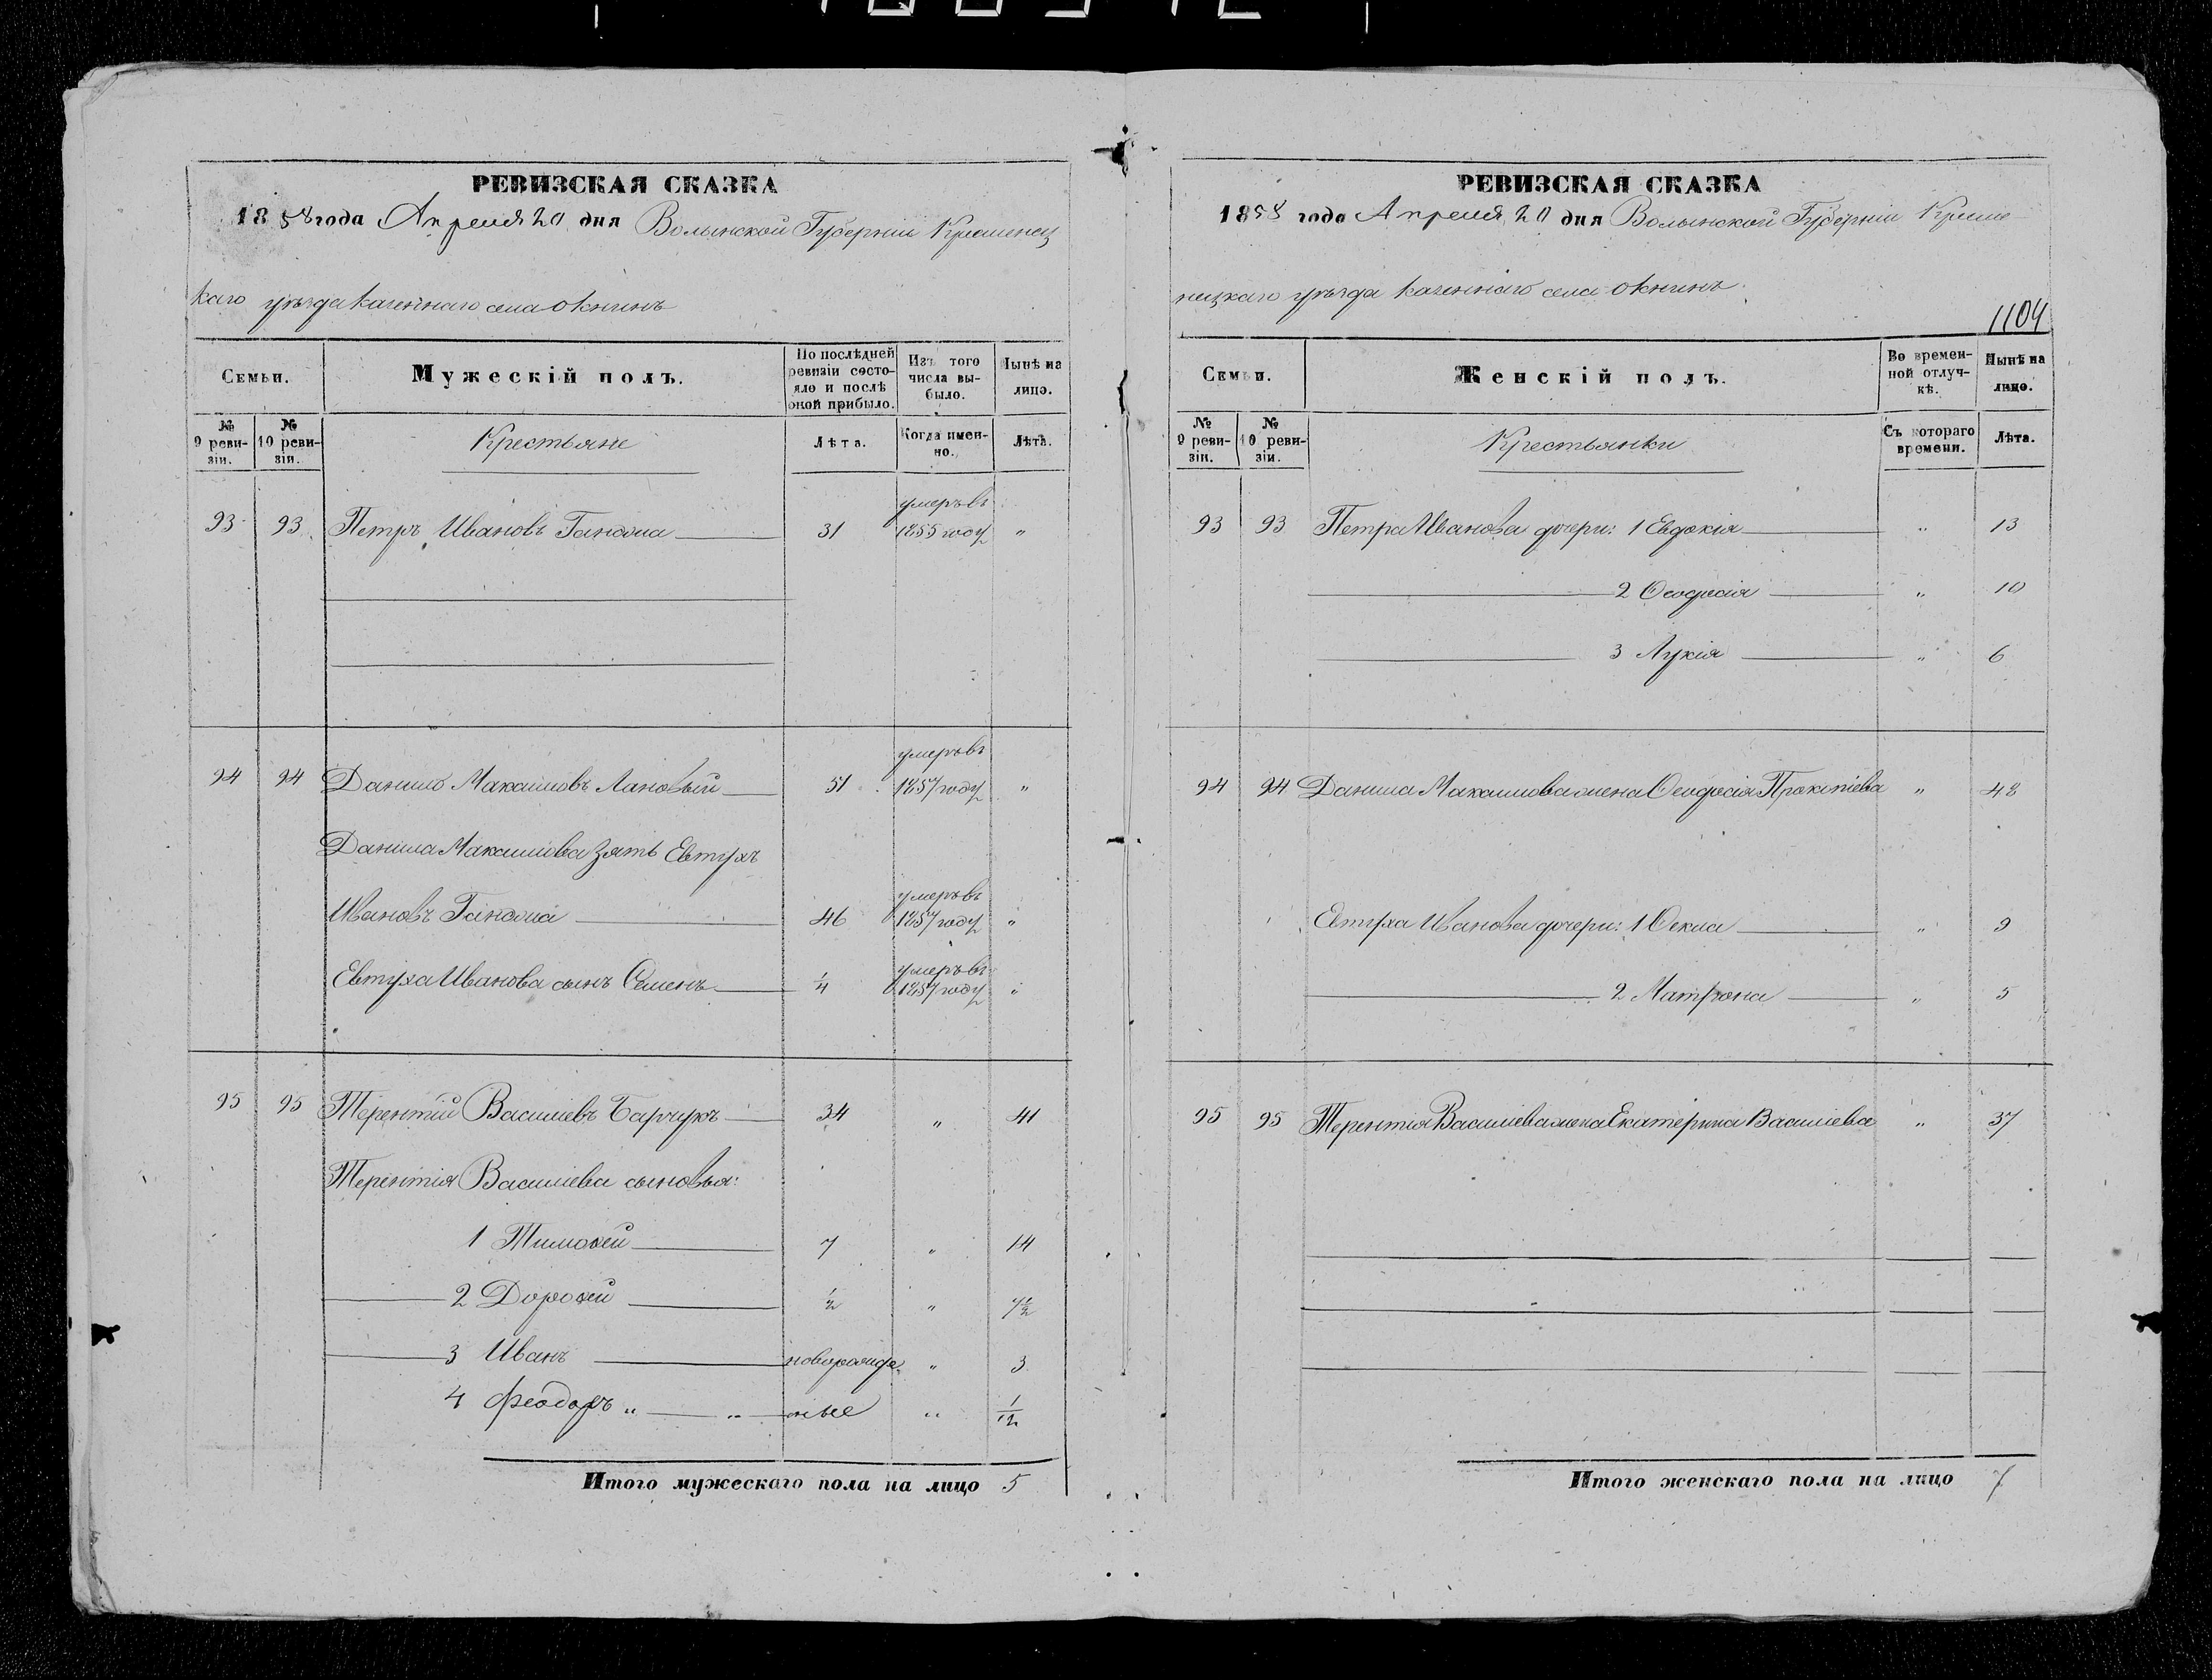 РЕВИЗСКАЯ СКАЗКА
1858 года Апреля 20 дня Волынской Губерніи Кременец
каго уѣзда казеннаго села Окнинъ
Семьи.
Мужескій полъ.
По послѣдней ревизіи состояло и послѣ оной прибыло.
Изъ того числа выбыло.
Нынѣ на лицо.
№ 9 ревизіи.
№ 10 ревизіи.
Крестьяне
Лѣта.
Когда именно.
Лѣта.
93 93 Петръ Ивановъ 31 умеръ въ 1855 году "
94 94 Данило Максимовъ Лановый 51 умеръ въ 1857 году "
Данила Максимова зять Евтухъ
Ивановъ 46 умеръ въ 1857 году "
Евтуха Иванова сынъ Семенъ 1/4 умеръ въ 1857 году "
95 95 Терентій Васильевъ 34 " 41
Терентія Васильева сыновья:
1 Тимоѳей 7 " 14
2 Дороѳей 1/2 " 7 1/2
3 Иванъ новорожде " 3
4 Феодоръ " " нные " 1/12
Итого мужескаго пола на лицо 5
РЕВИЗСКАЯ СКАЗКА
1858 года Апреля 20 дня Волынской Губерніи Креме
нецкаго уѣзда казеннаго села Окнинъ
1104
Семьи.
Женскій полъ.
Во временной отлучкѣ.
Нынѣ на лицо.
№ 9 ревизіи.
№ 10 ревизіи.
Крестьянки
Съ котораго времени.
Лѣта.
93 93 Петра Иванова дочери: 1 Евдокія " 13
2 Ѳеодосія " 10
3 Лукія " 6
94 94 Данила Максимова жена Ѳеодосія " 48
Евтуха Иванова дочери: 1 Ѳекла " 9
2 Матрона " 5
95 95 Терентія Васильева жена Екатерина Васильева " 37
Итого женскаго пола на лицо 7